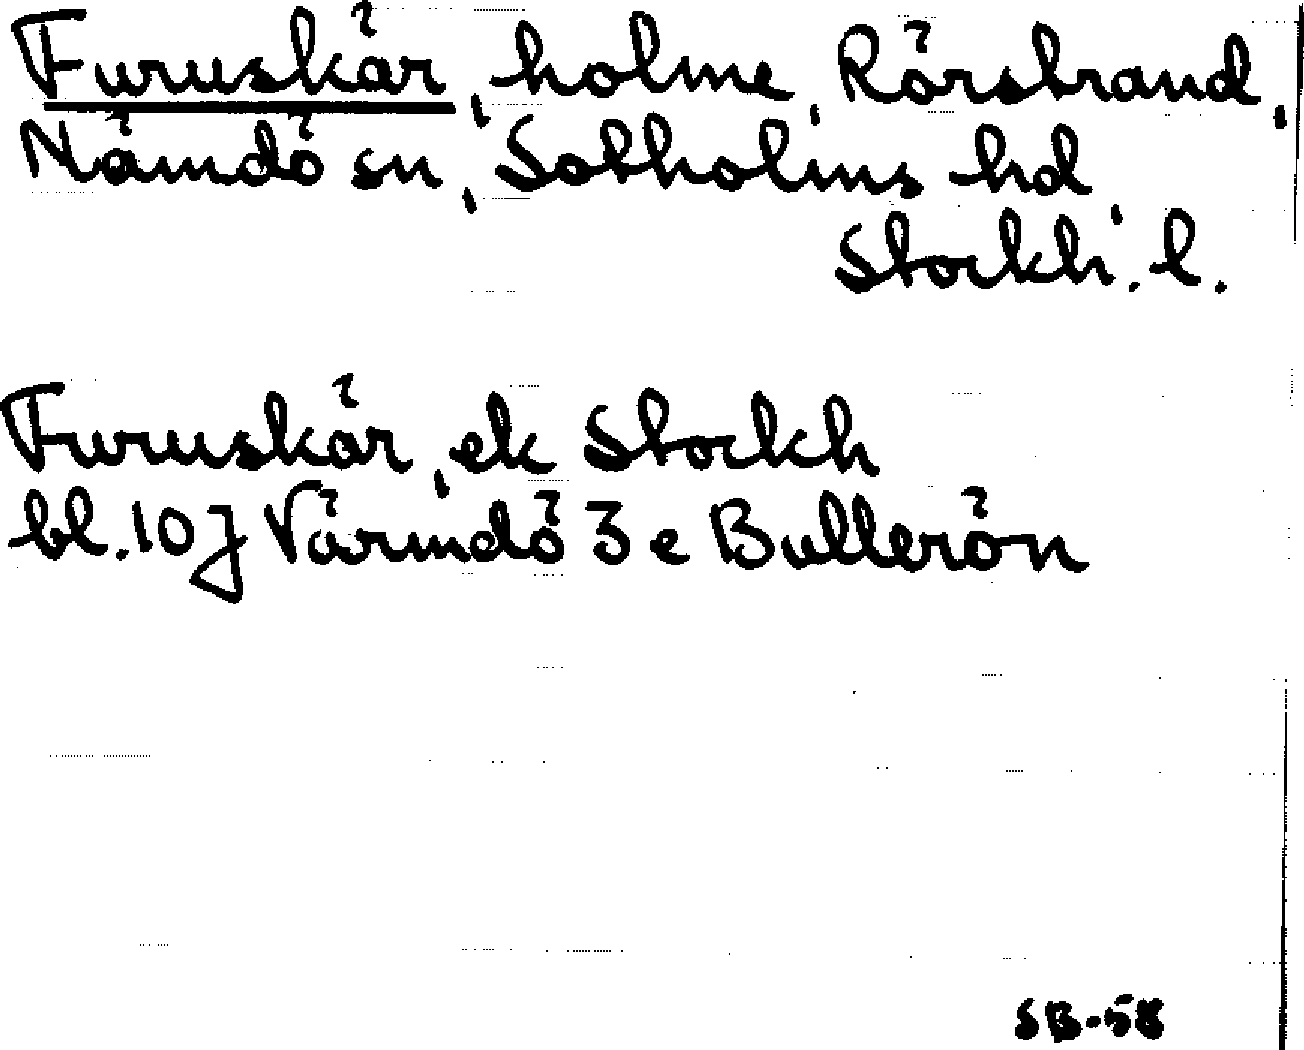 Furuskär, holme, Rörstrand,
Nämdö sn, Sotholms hd,
Stockh. l.
Furuskär, ek Stockh
bl. 10J Värmdö 3 e Bullerön
SB-58